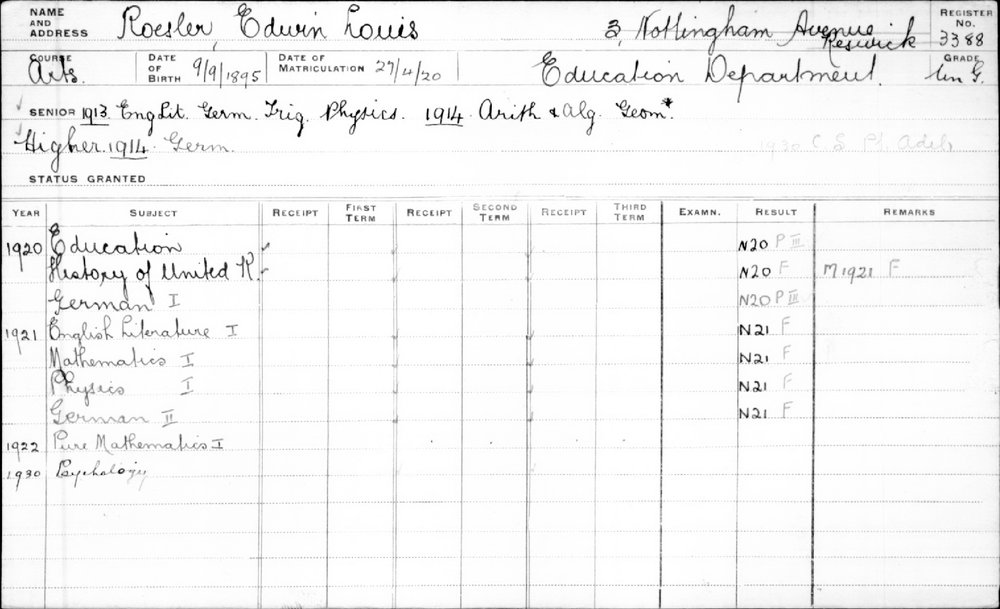 NAME AND ADDRESS Roesler, Edwin Louis 3, Nottingham Avenue Keswick REGISTER No. 3388
COURSE Arts. DATE OF BIRTH 9/9/1895 DATE OF MATRICULATION 27/4/20 Education Department. GRADE Un G.
SENIOR 1913 Eng Lit. Germ. Trig. Physics. 1914. Arith & Alg. Geom*
Higher 1914 Germ. 1930 C S Pt. Adel.
STATUS GRANTED
YEAR SUBJECT RECEIPT FIRST TERM RECEIPT SECOND TERM RECEIPT THIRD TERM EXAMN. RESULT REMARKS
1920 Education N20 P III
History of United K. N20 F M 1921 F
German I N20 P III
1921 English Literature I N21 F
Mathematics I N21 F
Physics I N21 F
German II N21 F
1922 Pure Mathematics I
1930 Psychology